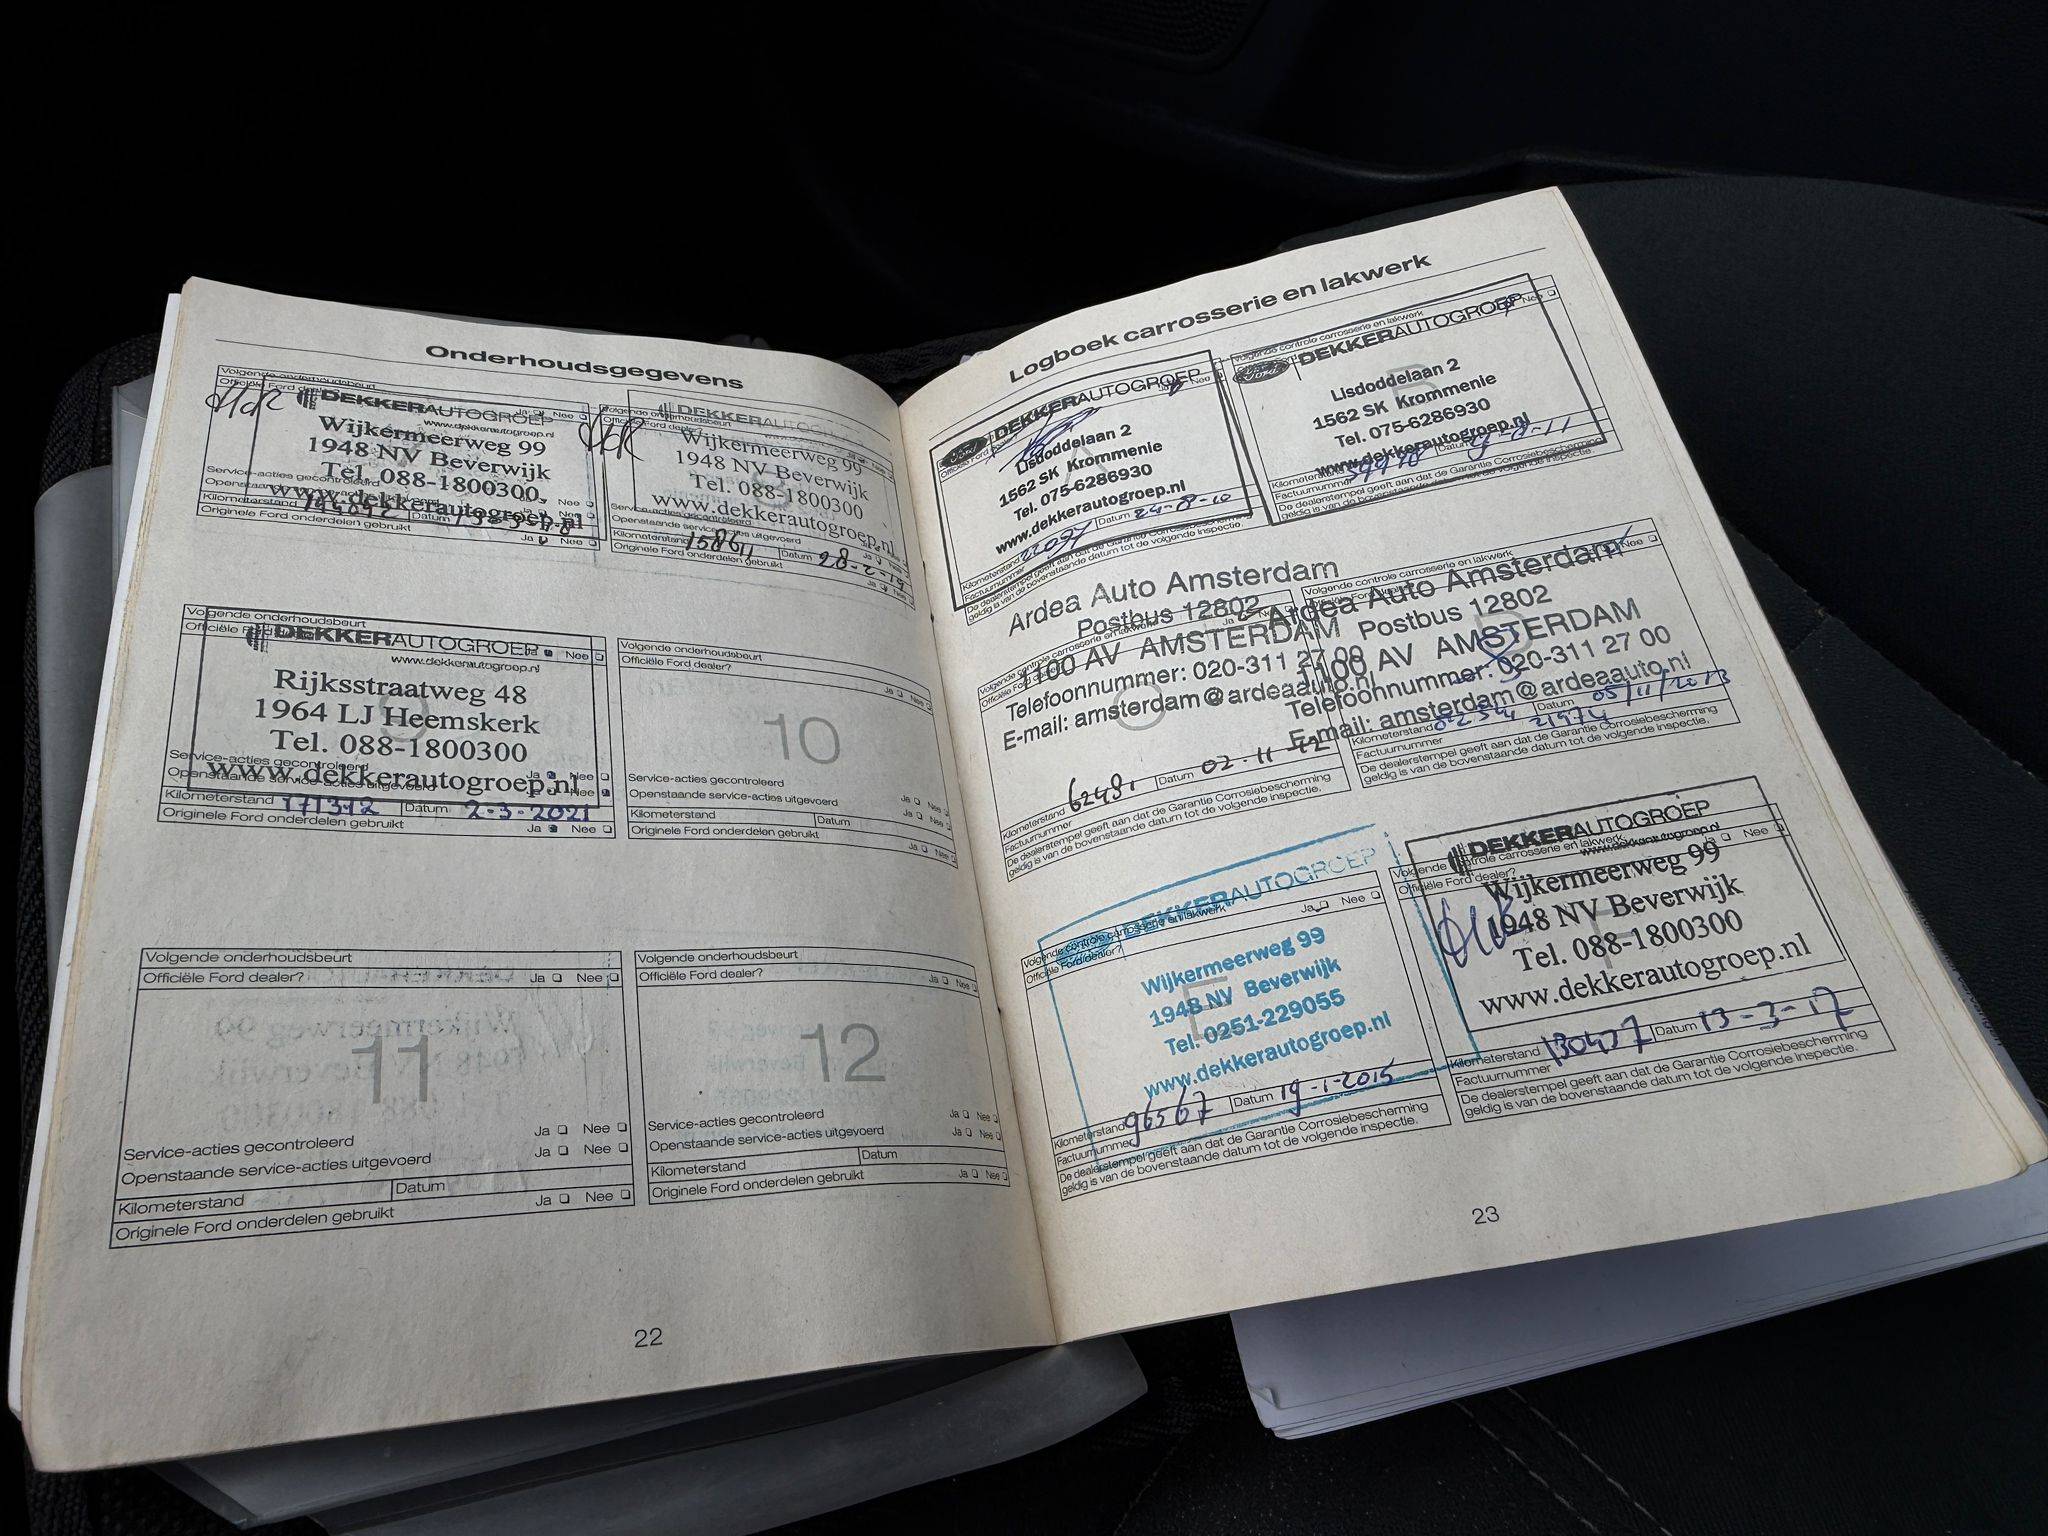 Onderhoudsgegevens
Volgende onderhoudsbeurt
Officiële Ford dealer? Ja Nee
DEKKERAUTOGROEP
www.dekkerautogroep.nl
Wijkermeerweg 99
1948 NV Beverwijk
Tel. 088-1800300
www.dekkerautogroep.nl
Service-acties gecontroleerd
Kilometerstand Datum
Originele Ford onderdelen gebruikt Ja Nee
Volgende onderhoudsbeurt
DEKKERAUTOGROEP
Wijkermeerweg 99
1948 NV Beverwijk
Tel. 088-1800300
www.dekkerautogroep.nl
Service-acties gecontroleerd
Openstaande service-acties uitgevoerd
Kilometerstand 158611 Datum 28-2-19
Originele Ford onderdelen gebruikt Ja Nee
Volgende onderhoudsbeurt
Officiële Ford dealer? Ja Nee
DEKKERAUTOGROEP
www.dekkerautogroep.nl
Rijksstraatweg 48
1964 LJ Heemskerk
Tel. 088-1800300
www.dekkerautogroep.nl
9
Service-acties gecontroleerd Ja Nee
Openstaande service-acties uitgevoerd Ja Nee
Kilometerstand 171312 Datum 2-3-2021
Originele Ford onderdelen gebruikt Ja Nee
Volgende onderhoudsbeurt
Officiële Ford dealer? Ja Nee
10
Service-acties gecontroleerd Ja Nee
Openstaande service-acties uitgevoerd Ja Nee
Kilometerstand Datum
Originele Ford onderdelen gebruikt Ja Nee
Volgende onderhoudsbeurt
Officiële Ford dealer? Ja Nee
11
Service-acties gecontroleerd Ja Nee
Openstaande service-acties uitgevoerd Ja Nee
Kilometerstand Datum
Originele Ford onderdelen gebruikt Ja Nee
Volgende onderhoudsbeurt
Officiële Ford dealer? Ja Nee
12
Service-acties gecontroleerd Ja Nee
Openstaande service-acties uitgevoerd Ja Nee
Kilometerstand Datum
Originele Ford onderdelen gebruikt Ja Nee
22
Logboek carrosserie en lakwerk
Ford DEKKERAUTOGROEP
Lisdoddelaan 2
1562 SK Krommenie
Tel. 075-6286930
www.dekkerautogroep.nl
Kilometerstand 22097 Datum 24-8-10
Factuurnummer
De dealerstempel geeft aan dat de Garantie Corrosiebescherming
geldig is van de bovenstaande datum tot de volgende inspectie.
Volgende controle carrosserie en lakwerk Nee
Ford DEKKERAUTOGROEP
Lisdoddelaan 2
1562 SK Krommenie
Tel. 075-6286930
www.dekkerautogroep.nl
Kilometerstand Datum
Factuurnummer
De dealerstempel geeft aan dat de Garantie Corrosiebescherming
geldig is van de bovenstaande datum tot de volgende inspectie.
Ardea Auto Amsterdam
Postbus 12802
1100 AV AMSTERDAM
Telefoonnummer: 020-311 27 00
E-mail: amsterdam@ardeaauto.nl
C
Kilometerstand 62481 Datum 02-11-12
Factuurnummer
De dealerstempel geeft aan dat de Garantie Corrosiebescherming
geldig is van de bovenstaande datum tot de volgende inspectie.
Volgende controle carrosserie en lakwerk Nee
Ardea Auto Amsterdam
Postbus 12802
1100 AV AMSTERDAM
Telefoonnummer: 020-311 27 00
E-mail: amsterdam@ardeaauto.nl
Kilometerstand Datum 05/11/2013
Factuurnummer 21974
De dealerstempel geeft aan dat de Garantie Corrosiebescherming
geldig is van de bovenstaande datum tot de volgende inspectie.
Volgende controle carrosserie en lakwerk Ja Nee
Officiële Ford dealer?
DEKKERAUTOGROEP
Wijkermeerweg 99
1948 NV Beverwijk
Tel. 0251-229055
www.dekkerautogroep.nl
E
Kilometerstand 96567 Datum 19-1-2015
Factuurnummer
De dealerstempel geeft aan dat de Garantie Corrosiebescherming
geldig is van de bovenstaande datum tot de volgende inspectie.
Volgende controle carrosserie en lakwerk Nee
Officiële Ford dealer?
DEKKERAUTOGROEP
www.dekkerautogroep.nl
Wijkermeerweg 99
1948 NV Beverwijk
Tel. 088-1800300
www.dekkerautogroep.nl
F
Kilometerstand 130437 Datum 13-3-17
Factuurnummer
De dealerstempel geeft aan dat de Garantie Corrosiebescherming
geldig is van de bovenstaande datum tot de volgende inspectie.
23